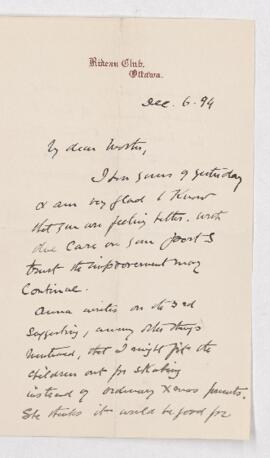 Rideau Club,
Ottawa.
Dec. 6. 94
My dear Mother,
I have yours of yesterday
& am very glad to know
that you are feeling better. With
due care on your part I
trust the improvement may
continue.
Anna writes on the 3rd
suggesting, among other things
mentioned, that I might fit the
children out for skating
instead of ordinary Xmas presents.
She thinks it would be good for